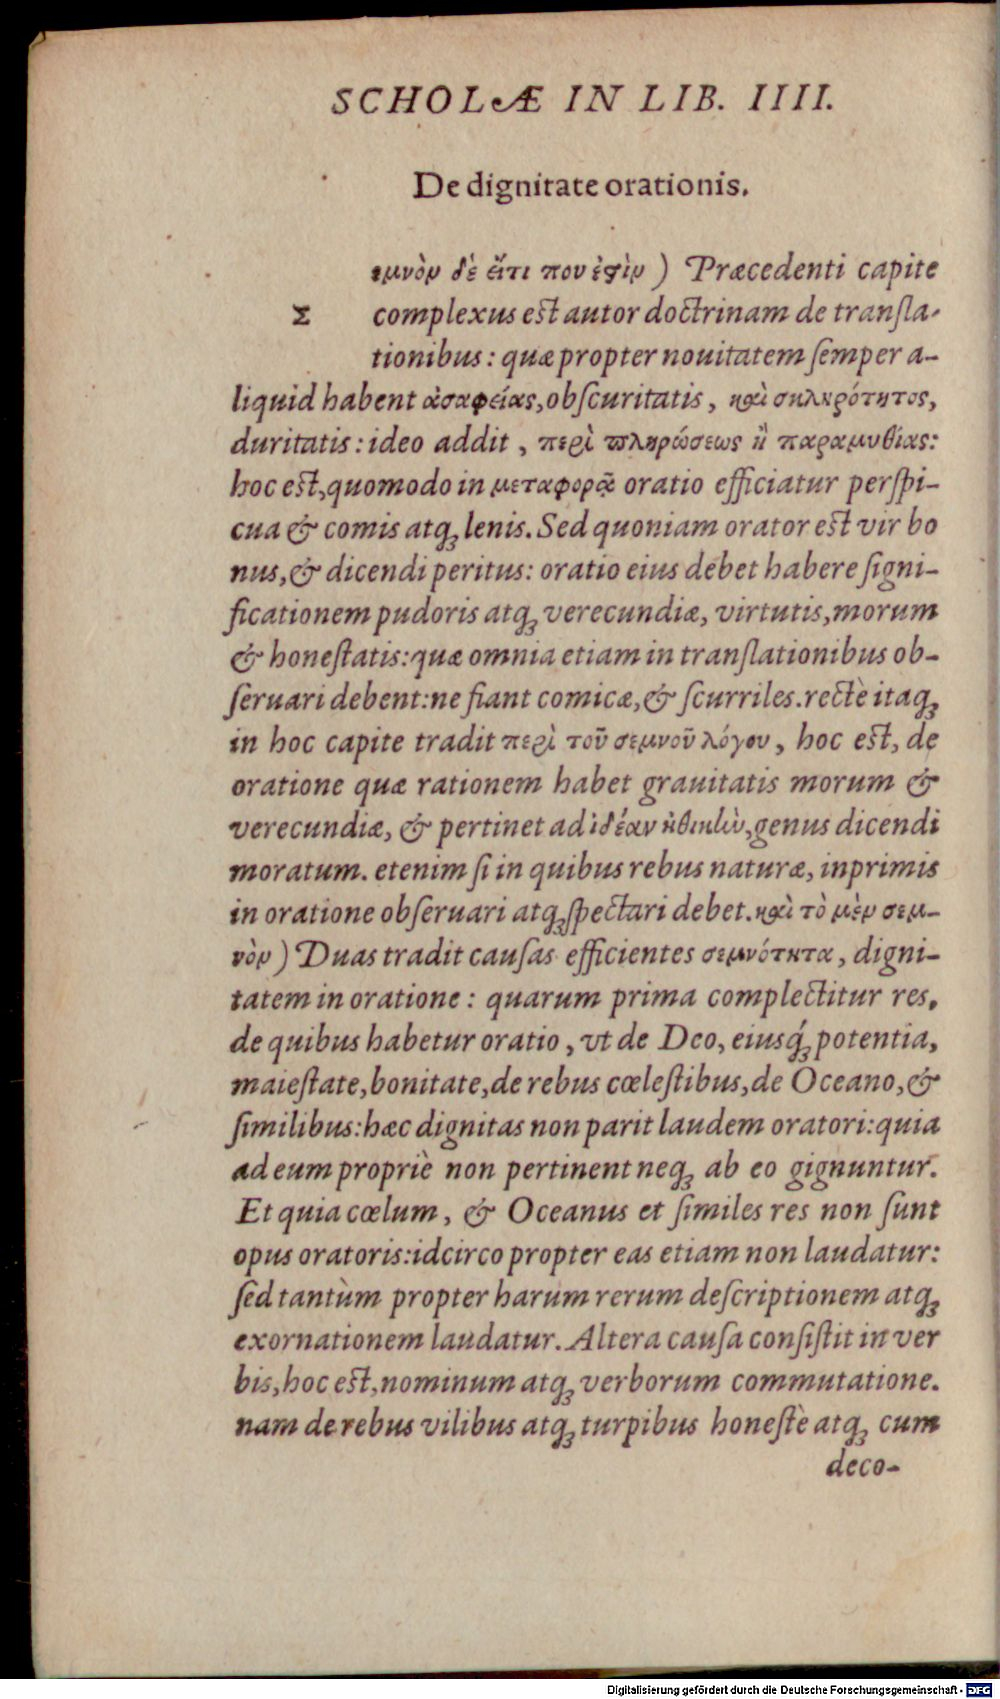 SCHOLÆ IN LIB. IIII.
De dignitate orationis.
εμνὸν δὲ ἔτι που ἐστὶν ) Præcedenti capite
Σ complexus est autor doctrinam de transla-
tionibus: quæ propter nouitatem semper a-
liquid habent ἀσαφείας, obscuritatis, καὶ σκληρότητος,
duritatis: ideo addit, περὶ πληρώσεως ἢ παραμυθίας:
hoc est, quomodo in μεταφορᾷ oratio efficiatur perspi-
cua & comis atq; lenis. Sed quoniam orator est vir bo
nus, & dicendi peritus: oratio eius debet habere signi-
ficationem pudoris atq; verecundiæ, virtutis, morum
& honestatis: quæ omnia etiam in translationibus ob-
seruari debent: ne fiant comicæ, & scurriles. rectè itaq;
in hoc capite tradit περὶ τοῦ σεμνοῦ λόγου, hoc est, de
oratione quæ rationem habet grauitatis morum &
verecundiæ, & pertinet ad ἰδέαν ἠθικὴν, genus dicendi
moratum. etenim si in quibus rebus naturæ, inprimis
in oratione obseruari atq; spectari debet. καὶ τὸ μὲν σεμ-
νὸν ) Duas tradit causas efficientes σεμνότητα, digni-
tatem in oratione: quarum prima complectitur res,
de quibus habetur oratio, vt de Deo, eiusq́; potentia,
maiestate, bonitate, de rebus cœlestibus, de Oceano, &
similibus: hæc dignitas non parit laudem oratori: quia
ad eum propriè non pertinent neq; ab eo gignuntur.
Et quia cœlum, & Oceanus et similes res non sunt
opus oratoris: idcirco propter eas etiam non laudatur:
sed tantùm propter harum rerum descriptionem atq;
exornationem laudatur. Altera causa consistit in ver
bis, hoc est, nominum atq; verborum commutatione.
nam de rebus vilibus atq; turpibus honestè atq; cum
deco-
Digitalisierung gefördert durch die Deutsche Forschungsgemeinschaft - DFG